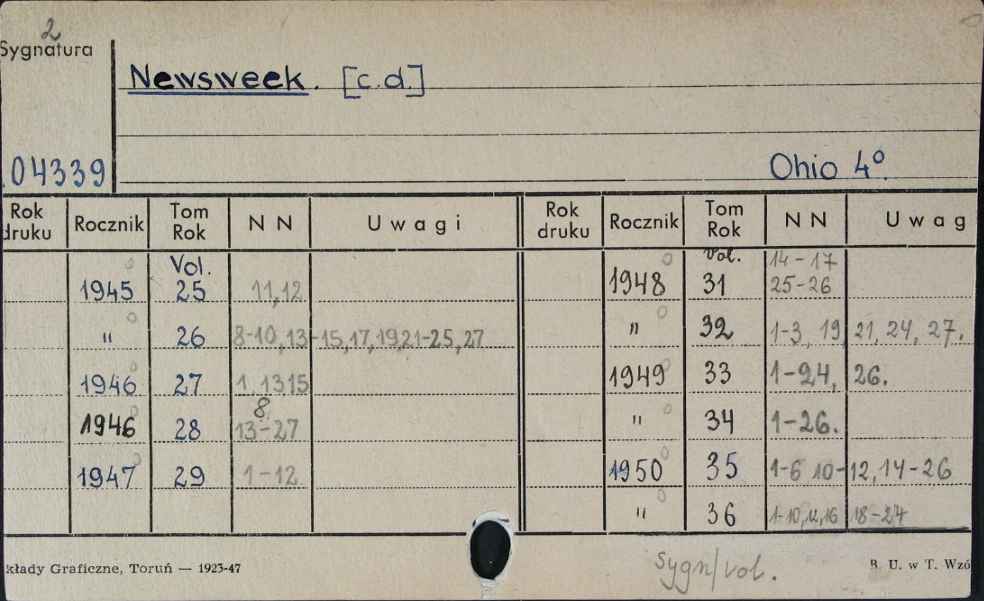 2
Sygnatura
Newsweek. [c.d.]
04339
Ohio 4°.
Rok druku Rocznik Tom Rok N N Uwagi Rok druku Rocznik Tom Rok N N Uwag
Vol. vol. 14-17
1945 25 11,12 1948 31 25-26
" 26 8-10,13-15,17,19,21-25,27 " 32 1-3, 19, 21, 24, 27.
1946 27 1, 13,15 1949 33 1-24, 26.
8.
1946 28 13-27 " 34 1-26.
1947 29 1-12 1950 35 1-6 10-12, 14-26
" 36 1-10,12,16 18-24
kłady Graficzne, Toruń — 1923-47
Sygn/vol.
B. U. w T. Wzó